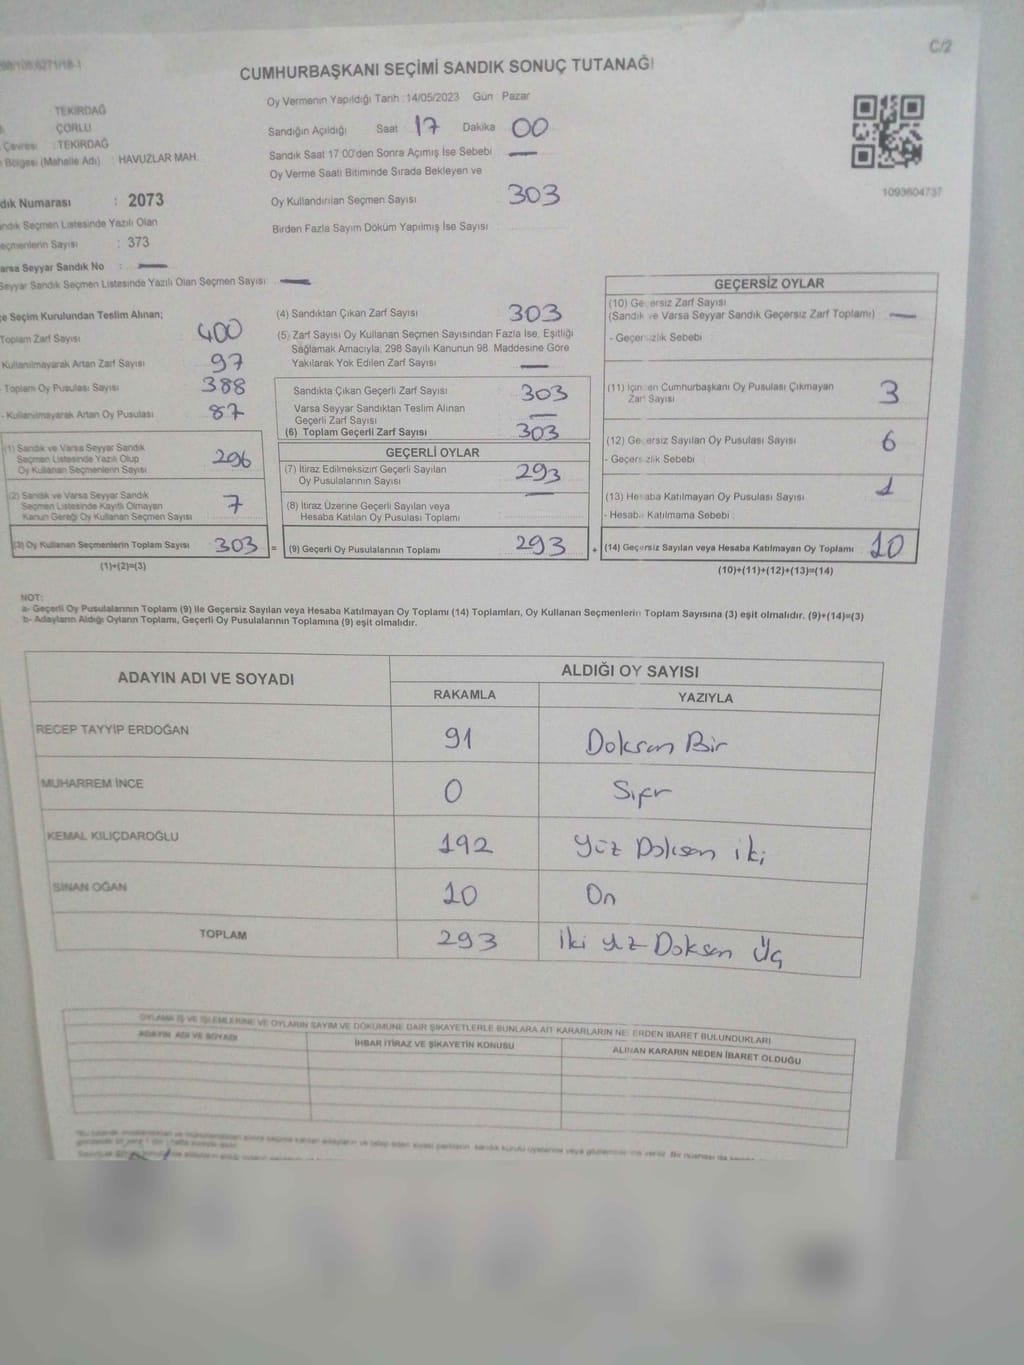 C/2
CUMHURBAŞKANI SEÇİMİ SANDIK SONUÇ TUTANAĞI
TEKİRDAĞ
ÇORLU
Çevresi : TEKİRDAĞ
Bölgesi (Mahalle Adı) : HAVUZLAR MAH.
Numarası : 2073
Seçmen Listesinde Yazılı Olan
Seçmenlerin Sayısı : 373
Varsa Seyyar Sandık No : —
Seyyar Sandık Seçmen Listesinde Yazılı Olan Seçmen Sayısı : —
Oy Vermenin Yapıldığı Tarih : 14/05/2023 Gün : Pazar
Sandığın Açıldığı Saat 17 Dakika 00
Sandık Saat 17:00'den Sonra Açımış İse Sebebi —
Oy Verme Saati Bitiminde Sırada Bekleyen ve
Oy Kullandırılan Seçmen Sayısı 303
Birden Fazla Sayım Döküm Yapılmış İse Sayısı
1093604737
Seçim Kurulundan Teslim Alınan;
Toplam Zarf Sayısı 400
Kullanılmayarak Artan Zarf Sayısı 97
Toplam Oy Pusulası Sayısı 388
- Kullanılmayarak Artan Oy Pusulası 87
(1) Sandık ve Varsa Seyyar Sandık
Seçmen Listesinde Yazılı Olup
Oy Kullanan Seçmenlerin Sayısı 296
(2) Sandık ve Varsa Seyyar Sandık
Seçmen Listesinde Kayıtlı Olmayan
Kanun Gereği Oy Kullanan Seçmen Sayısı 7
(3) Oy Kullanan Seçmenlerin Toplam Sayısı 303 =
(1)+(2)=(3)
(4) Sandıktan Çıkan Zarf Sayısı 303
(5) Zarf Sayısı Oy Kullanan Seçmen Sayısından Fazla İse, Eşitliği
Sağlamak Amacıyla, 298 Sayılı Kanunun 98. Maddesine Göre
Yakılarak Yok Edilen Zarf Sayısı —
Sandıkta Çıkan Geçerli Zarf Sayısı 303
Varsa Seyyar Sandıktan Teslim Alınan
Geçerli Zarf Sayısı —
(6) Toplam Geçerli Zarf Sayısı 303
GEÇERLİ OYLAR
(7) İtiraz Edilmeksizin Geçerli Sayılan
Oy Pusulalarının Sayısı 293
(8) İtiraz Üzerine Geçerli Sayılan veya
Hesaba Katılan Oy Pusulası Toplamı —
(9) Geçerli Oy Pusulalarının Toplamı 293 +
GEÇERSİZ OYLAR
(10) Geçersiz Zarf Sayısı
(Sandık ve Varsa Seyyar Sandık Geçersiz Zarf Toplamı) —
- Geçersizlik Sebebi
(11) İçinden Cumhurbaşkanı Oy Pusulası Çıkmayan
Zarf Sayısı 3
(12) Geçersiz Sayılan Oy Pusulası Sayısı 6
- Geçersizlik Sebebi
(13) Hesaba Katılmayan Oy Pusulası Sayısı 1
- Hesaba Katılmama Sebebi
(14) Geçersiz Sayılan veya Hesaba Katılmayan Oy Toplamı 10
(10)+(11)+(12)+(13)=(14)
NOT:
a- Geçerli Oy Pusulalarının Toplamı (9) ile Geçersiz Sayılan veya Hesaba Katılmayan Oy Toplamı (14) Toplamları, Oy Kullanan Seçmenlerin Toplam Sayısına (3) eşit olmalıdır. (9)+(14)=(3)
b- Adayların Aldığı Oyların Toplamı, Geçerli Oy Pusulalarının Toplamına (9) eşit olmalıdır.
ADAYIN ADI VE SOYADI ALDIĞI OY SAYISI
RAKAMLA YAZIYLA
RECEP TAYYİP ERDOĞAN 91 Doksan Bir
MUHARREM İNCE 0 Sıfır
KEMAL KILIÇDAROĞLU 192 Yüz Doksan iki
SİNAN OĞAN 10 On
TOPLAM 293 İki yüz Doksan Üç
OYLAMA İŞ VE İŞLEMLERİNE VE OYLARIN SAYIM VE DÖKÜMÜNE DAİR ŞİKAYETLERLE BUNLARA AİT KARARLARIN NELERDEN İBARET BULUNDUKLARI
ADAYIN ADI VE SOYADI İHBAR İTİRAZ VE ŞİKAYETİN KONUSU ALINAN KARARIN NEDEN İBARET OLDUĞU